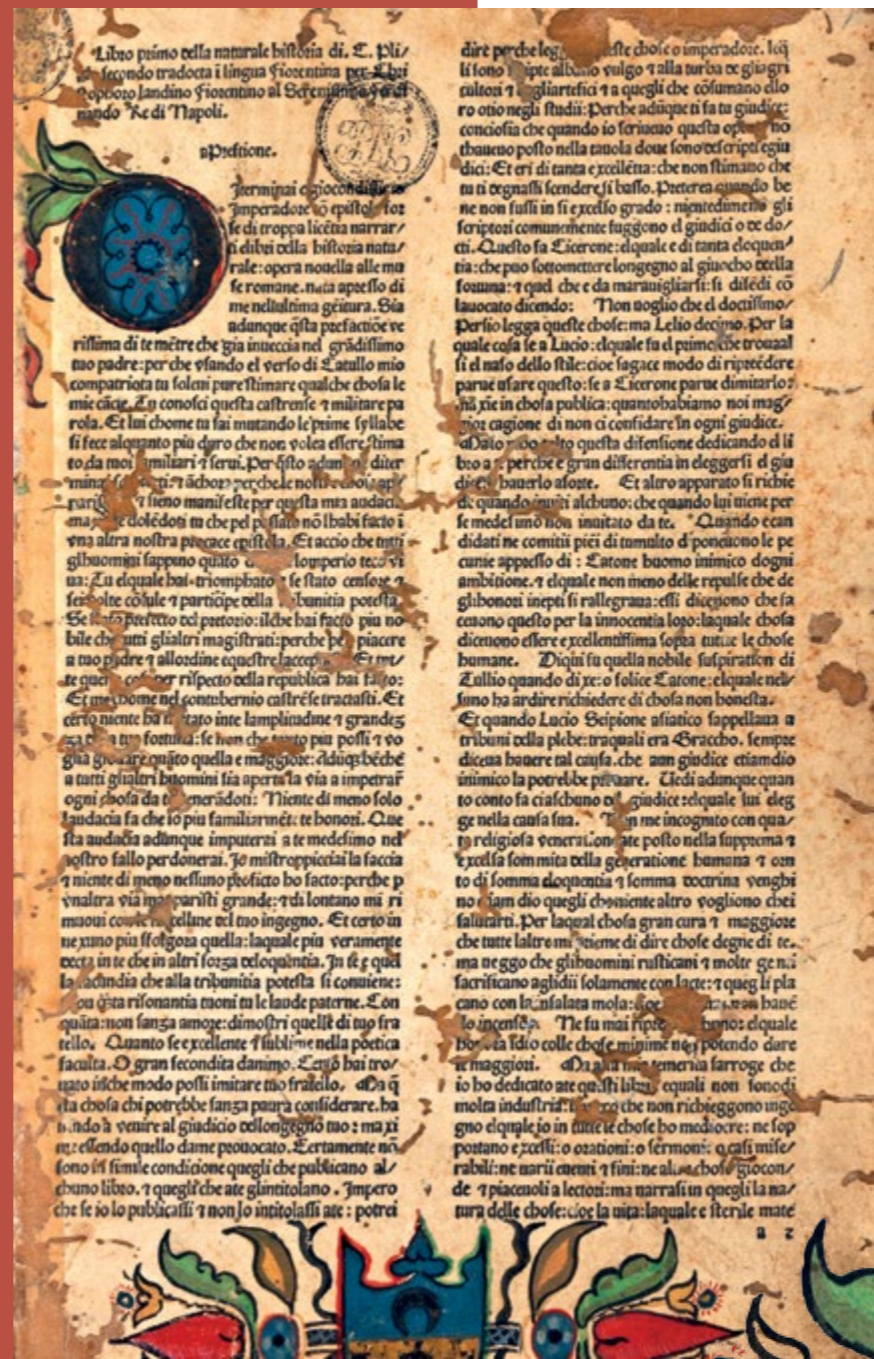 Libro primo della naturale historia di. C. Pli
secondo tradocta i lingua fiorentina per Chri
stophoro landino fiorentino al Serenissimo Ferdi
nando Re di Napoli.
Prefatione.
Iterminai o giocondissimo
Imperadore cō epistola for
se di troppa licētia narrar/
ti elibri della historia natu/
rale: opera nouella alle mu
se romane. nata apresso di
me nellultima gēitura. Sia
adunque q̄sta prefactiōe ve
rissima di te mētre che gia inueccia nel grādissimo
tuo padre: per che vsando el verso di Catullo mio
compatriota tu soleui pure stimare qualche chosa le
mie cāce. Tu conosci questa castrense ⁊ militare pa
rola. Et lui chome tu sai mutando le prime syllabe
si fece alquanto piu duro che non volea essere stima
to da tuoi familiari ⁊ serui. Per q̄sto diter
minai perche le nostre
⁊ sieno manifeste per questa mia audacia.
dolēdoti tu che pel passato nō lhabi facto ī
vna altra nostra procace epistola. Et accio che tutti
glihuomini sappino quāto lomperio teco vi
ua: Tu elquale hai triomphato ⁊ se stato censore ⁊
sei volte cōsule ⁊ participe della tribunitia potesta.
prefecto del pretorio: ilche hai facto piu no
bile che tutti glialtri magistrati: perche per piacere
a tuo padre ⁊ allordine equestre
te per rispecto della republica hai facto:
Et me chome nel contubernio castrēse tractasti. Et
certo niente ha mutato in te lamplitudine ⁊ grandez
za della tua fortuna: se non che tanto piu possi ⁊ vo
glia giouare quāto quella e maggiore. Adūq̄ bēche
a tutti glialtri huomini sia aperta la via a impetrar
ogni chosa da te venerādoti: Niente di meno solo
laudacia fa che io piu familiarmēte te honori. Que
sta audacia adunque imputerai a te medesimo nel
nostro fallo perdonerai. Io mi stroppicciai la faccia
⁊ niente di meno nessuno proficto ho facto: perche p
vnaltra via mi paristi grande: ⁊ di lontano mi ri
maoui con le facelline del tuo ingegno. Et certo in
nexuno piu sfolgora quella: laquale piu veramente
decta in te che in altri forza deloquentia. In te e quel
la facundia che alla tribunitia potesta si conuiene:
Con q̄ta risonantia tuoni tu le laude paterne. Con
quāta: non sanza amore: dimostri quelle di tuo fra
tello. Quanto se excellente ⁊ sublime nella poetica
faculta. O gran fecondita danimo. Certo hai tro/
uato inche modo possi imitare tuo fratello. Ma q̄
sta chosa chi potrebbe sanza paura considerare. ha
uendo a venire al giudicio dellongegno tuo: maxi
me essendo quello da me prouocato. Certamente nō
sono in simile condicione quegli che publicano al/
chuno libro. ⁊ quegli che ate glintitolano. Impero
che se io lo publicassi ⁊ non lo intitolassi ate: potrei
dire perche leggi queste chose o imperadore. leq̄
li sono scripte albasso vulgo ⁊ alla turba de gliagri
cultori ⁊ degliartefici ⁊ a quegli che cōsumano ello
ro otio negli studii: Perche adūque ti fa tu giudice:
conciosia che quando io scriueuo questa opera no
thaueuo posto nella tauola doue sono descripti egiu
dici: Et eri di tanta excellētia: che non stimano che
tu ti degnassi scendere si basso. Preterea quando be
ne non fussi in si excelso grado: nientedimeno gli
scriptori comunemente fuggono el giudici o de do/
cti. Questo fa Cicerone: elquale e di tanta eloquen/
tia: che puo sottomettere longegno al giuocho della
fortuna: ⁊ quel che e da marauigliarsi: si difēdi cō
lauocato dicendo: Non voglio che el doctissimo/
Persio legga queste chose: ma Lelio decimo. Per la
quale cosa se a Lucio: elquale fu el primo che trouaal
si el naso dello stile: cioe sagace modo di ripredēre
parue vsare questo: se a Cicerone parue dimitarlo:
in chosa publica: quanto habiamo noi mag/
gior cagione di non ci confidare in ogni giudice.
Ma io mi ho tolto questa difensione dedicando el li
bro a te perche e gran differentia in eleggersi el giu
dice hauerlo asorte. Et altro apparato si richie
de quando inuiti alchuno: che quando lui viene per
se medesimo non inuitato da te. Quando ecan
didati ne comitii piēi di tumulto diponeuono le pe
cunie appresso di: Catone huomo inimico dogni
ambitione. ⁊ elquale non meno delle repulse che de
glihonori inepti si rallegraua: essi diceuono che fa
ceuono questo per la innocentia loro: laquale chosa
diceuono essere excellentissima sopra tutte le chose
humane. Diqui fu quella nobile suspiration di
Tullio quando dixe: o felice Catone: elquale nes/
suno ha ardire richiedere di chosa non honesta.
Et quando Lucio Scipione asiatico sappellaua a
tribuni della plebe: traquali era Graccho. sempre
diceua hauere tal causa. che aun giudice etiamdio
inimico la potrebbe prouare. Uedi adunque quan
to conto fa ciaschuno del giudice: elquale lui eleg
ge nella causa sua. me incognito con qua/
ta religiosa veneratione ate posto nella supprema ⁊
excelsa sommita della generatione humana ⁊ orn
to di somma eloquentia ⁊ somma doctrina venghi
no etiam dio quegli che niente altro vogliono che
salutarti. Per laqual chosa gran cura ⁊ maggiore
che tutte laltre mi ritieme di dire chose degne di te.
ma veggo che glihuomini rusticani ⁊ molte genti
sacrificano aglidii solamente con lacte: ⁊ quegli pla
cano con la insalata mola: non hanē
lo incenso. Ne fu mai ripreso alchuno: elquale
honora Idio colle chose minime non potendo dare
le maggiori. Ma alla mia temerita sarroge che
io ho dedicato ate questi libri. equali non sono di
molta industria: che non richieggono inge
gno elquale io in tutte le chose ho mediocre: ne sop
portano excessi: o orationi: o sermoni: o casi mise/
rabili: ne varii euenti ⁊ fini: ne al chose giocon/
de ⁊ piaceuoli a lectori: ma narrasi in quegli la na/
tura delle chose: cioe la vita: laquale e sterile mate
a 2